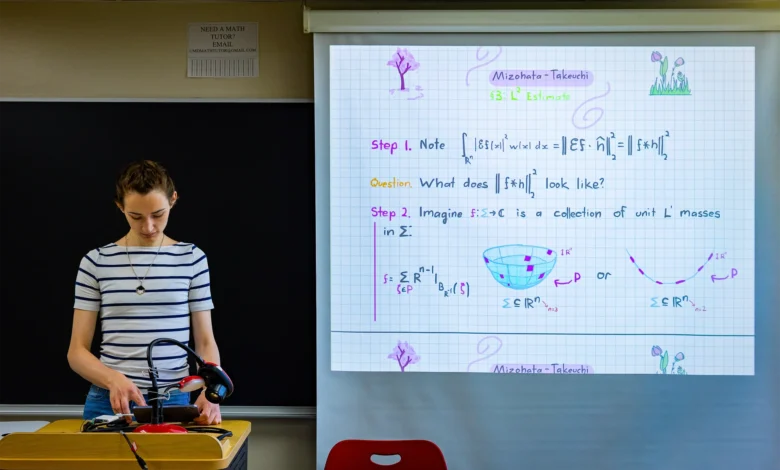 NEED A MATH
TUTOR?
EMAIL
Mizohata-Takeuchi
§3: L² Estimate
Step 1. Note ∫_{ℝⁿ} |Ef(x)|² w(x) dx = ‖Ef · ĥ‖₂² = ‖f*h‖₂²
Question. What does ‖f*h‖₂² look like?
Step 2. Imagine f: Σ→ℂ is a collection of unit L¹ masses
in Σ:
f = Σ_{ξ∈P} R^{n-1} 1_{B_{R^{-1}}(ξ)}
I R⁻¹
P
or
I R⁻¹
P
Σ ⊆ ℝⁿ n=3
Σ ⊆ ℝⁿ n=2
Mizohata-Takeuchi